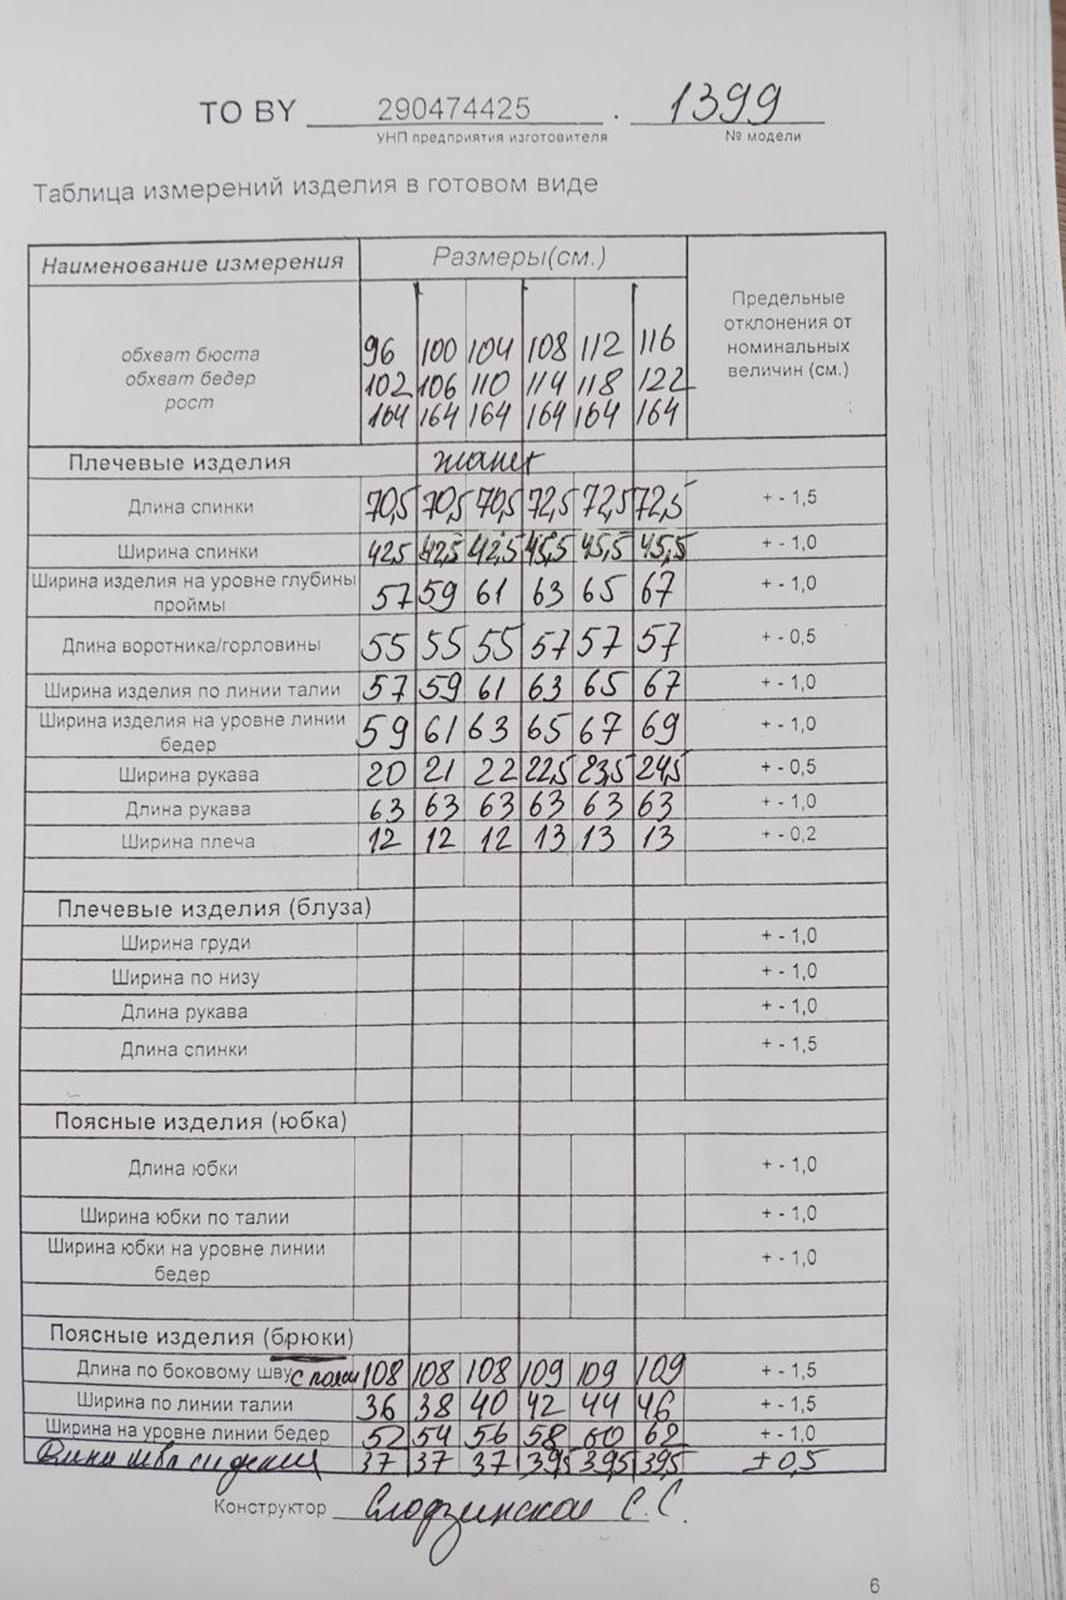 ТО BY 290474425 . 1399
УНП предприятия изготовителя № модели
Таблица измерений изделия в готовом виде
Наименование измерения Размеры(см.) Предельные отклонения от номинальных величин (см.)
обхват бюста 96 100 104 108 112 116
обхват бедер 102 106 110 114 118 122
рост 164 164 164 164 164 164
Плечевые изделия жакет
Длина спинки 70,5 70,5 70,5 72,5 72,5 72,5 + - 1,5
Ширина спинки 42,5 42,5 42,5 45,5 45,5 45,5 + - 1,0
Ширина изделия на уровне глубины проймы 57 59 61 63 65 67 + - 1,0
Длина воротника/горловины 55 55 55 57 57 57 + - 0,5
Ширина изделия по линии талии 57 59 61 63 65 67 + - 1,0
Ширина изделия на уровне линии бедер 59 61 63 65 67 69 + - 1,0
Ширина рукава 20 21 22 22,5 23,5 24,5 + - 0,5
Длина рукава 63 63 63 63 63 63 + - 1,0
Ширина плеча 12 12 12 13 13 13 + - 0,2
Плечевые изделия (блуза)
Ширина груди + - 1,0
Ширина по низу + - 1,0
Длина рукава + - 1,0
Длина спинки + - 1,5
Поясные изделия (юбка)
Длина юбки + - 1,0
Ширина юбки по талии + - 1,0
Ширина юбки на уровне линии бедер + - 1,0
Поясные изделия (брюки)
Длина по боковому шву с поясом 108 108 108 109 109 109 + - 1,5
Ширина по линии талии 36 38 40 42 44 46 + - 1,5
Ширина на уровне линии бедер 52 54 56 58 60 62 + - 1,0
Длина шва сидения 37 37 37 39,5 39,5 39,5 ± 0,5
Конструктор Слодзинская С.С.
6